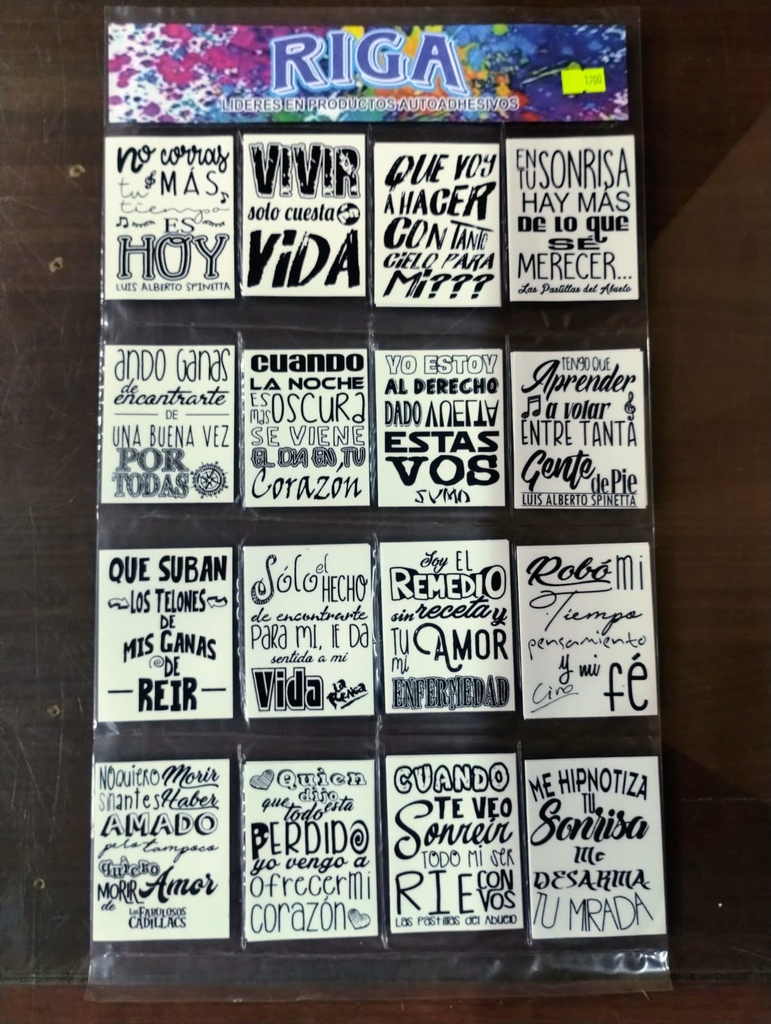 RIGA
1700
LIDERES EN PRODUCTOS AUTOADHESIVOS
no corras
tu MÁS
tiempo
ES
HOY
LUIS ALBERTO SPINETTA
VIVIR
solo cuesta
VIDA
QUE VOY
A HACER
CON TANTO
CIELO PARA
MI???
EN
TU SONRISA
HAY MÁS
DE LO QUE
SÉ
MERECER...
Las Pastillas del Abuelo
ANDO GANAS
de
encontrarte
DE
UNA BUENA VEZ
POR
TODAS
CUANDO
LA NOCHE
ES
mas OSCURA
SE VIENE
EL DIA EN TU
Corazon
YO ESTOY
AL DERECHO
DADO VUELTA
ESTAS
VOS
SUMO
TENGO QUE
Aprender
a volar
ENTRE TANTA
Gente
de Pie
LUIS ALBERTO SPINETTA
QUE SUBAN
LOS TELONES
DE
MIS GANAS
DE
REIR
Sólo el
HECHO
de encontrarte
PARA MI, LE DA
sentido a mi
Vida
La Renga
Soy EL
REMEDIO
sin receta y
TU AMOR
mi
ENFERMEDAD
Robó mi
Tiempo
pensamiento
y mi
fé
Ciro
NO quiero Morir
sin antes Haber
AMADO
pero tampoco
quiero
MORIR Amor
de
LOS FABULOSOS
CADILLACS
Quien
dijo
que todo está
PERDIDO
yo vengo a
ofrecer mi
corazón
CUANDO
TE VEO
Sonreír
TODO MI SER
RIE CON
VOS
Las Pastillas del Abuelo
ME HIPNOTIZA
TU
Sonrisa
Me
DESARMA
TU MIRADA